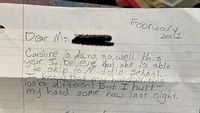 February
2021
Dear Ms.
Caroline is doing so well this
year I believe that she is able
to skip to Middle school.
I know
looks different but I hurt
my hand some how last night.